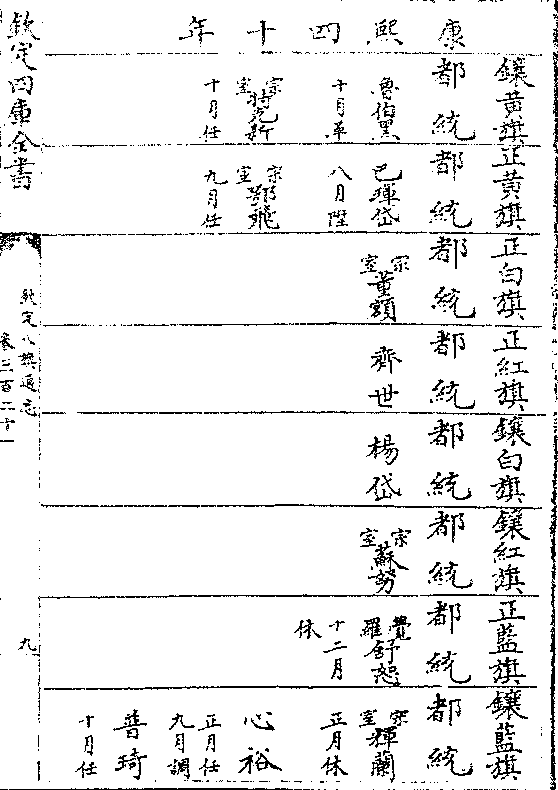 康熙四十年
鑲黃旗都統
魯伯黑
十月卒
宗室特克新
十月任
正黃旗都統
巴琿岱
八月陞
宗室鄂飛
九月任
正白旗都統
宗室董額
正紅旗都統
齊世
鑲白旗都統
楊岱
鑲紅旗都統
宗室蘇努
正藍旗都統
覺羅舒恕
十二月休
鑲藍旗都統
宗室輝蘭
正月休
心裕
正月任
九月調
普琦
十月任
欽定四庫全書
欽定八旗通志
卷三百二十一
九